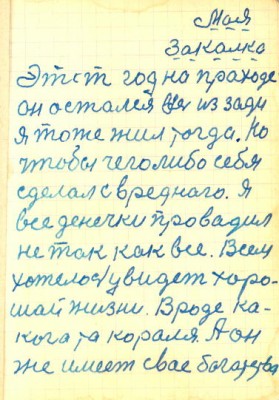 Моя
Закалка
Этст год на праходе
он остался из зади
я тоже жил тогда. Но
чтобы чего либо себя
сделал с вреднаго. Я
все денечки провадил
не так как все. Всем
хотелось увидет хоро-
шай жизни. Вроде ка-
кога та кораля. А он
же имеет свае богатства